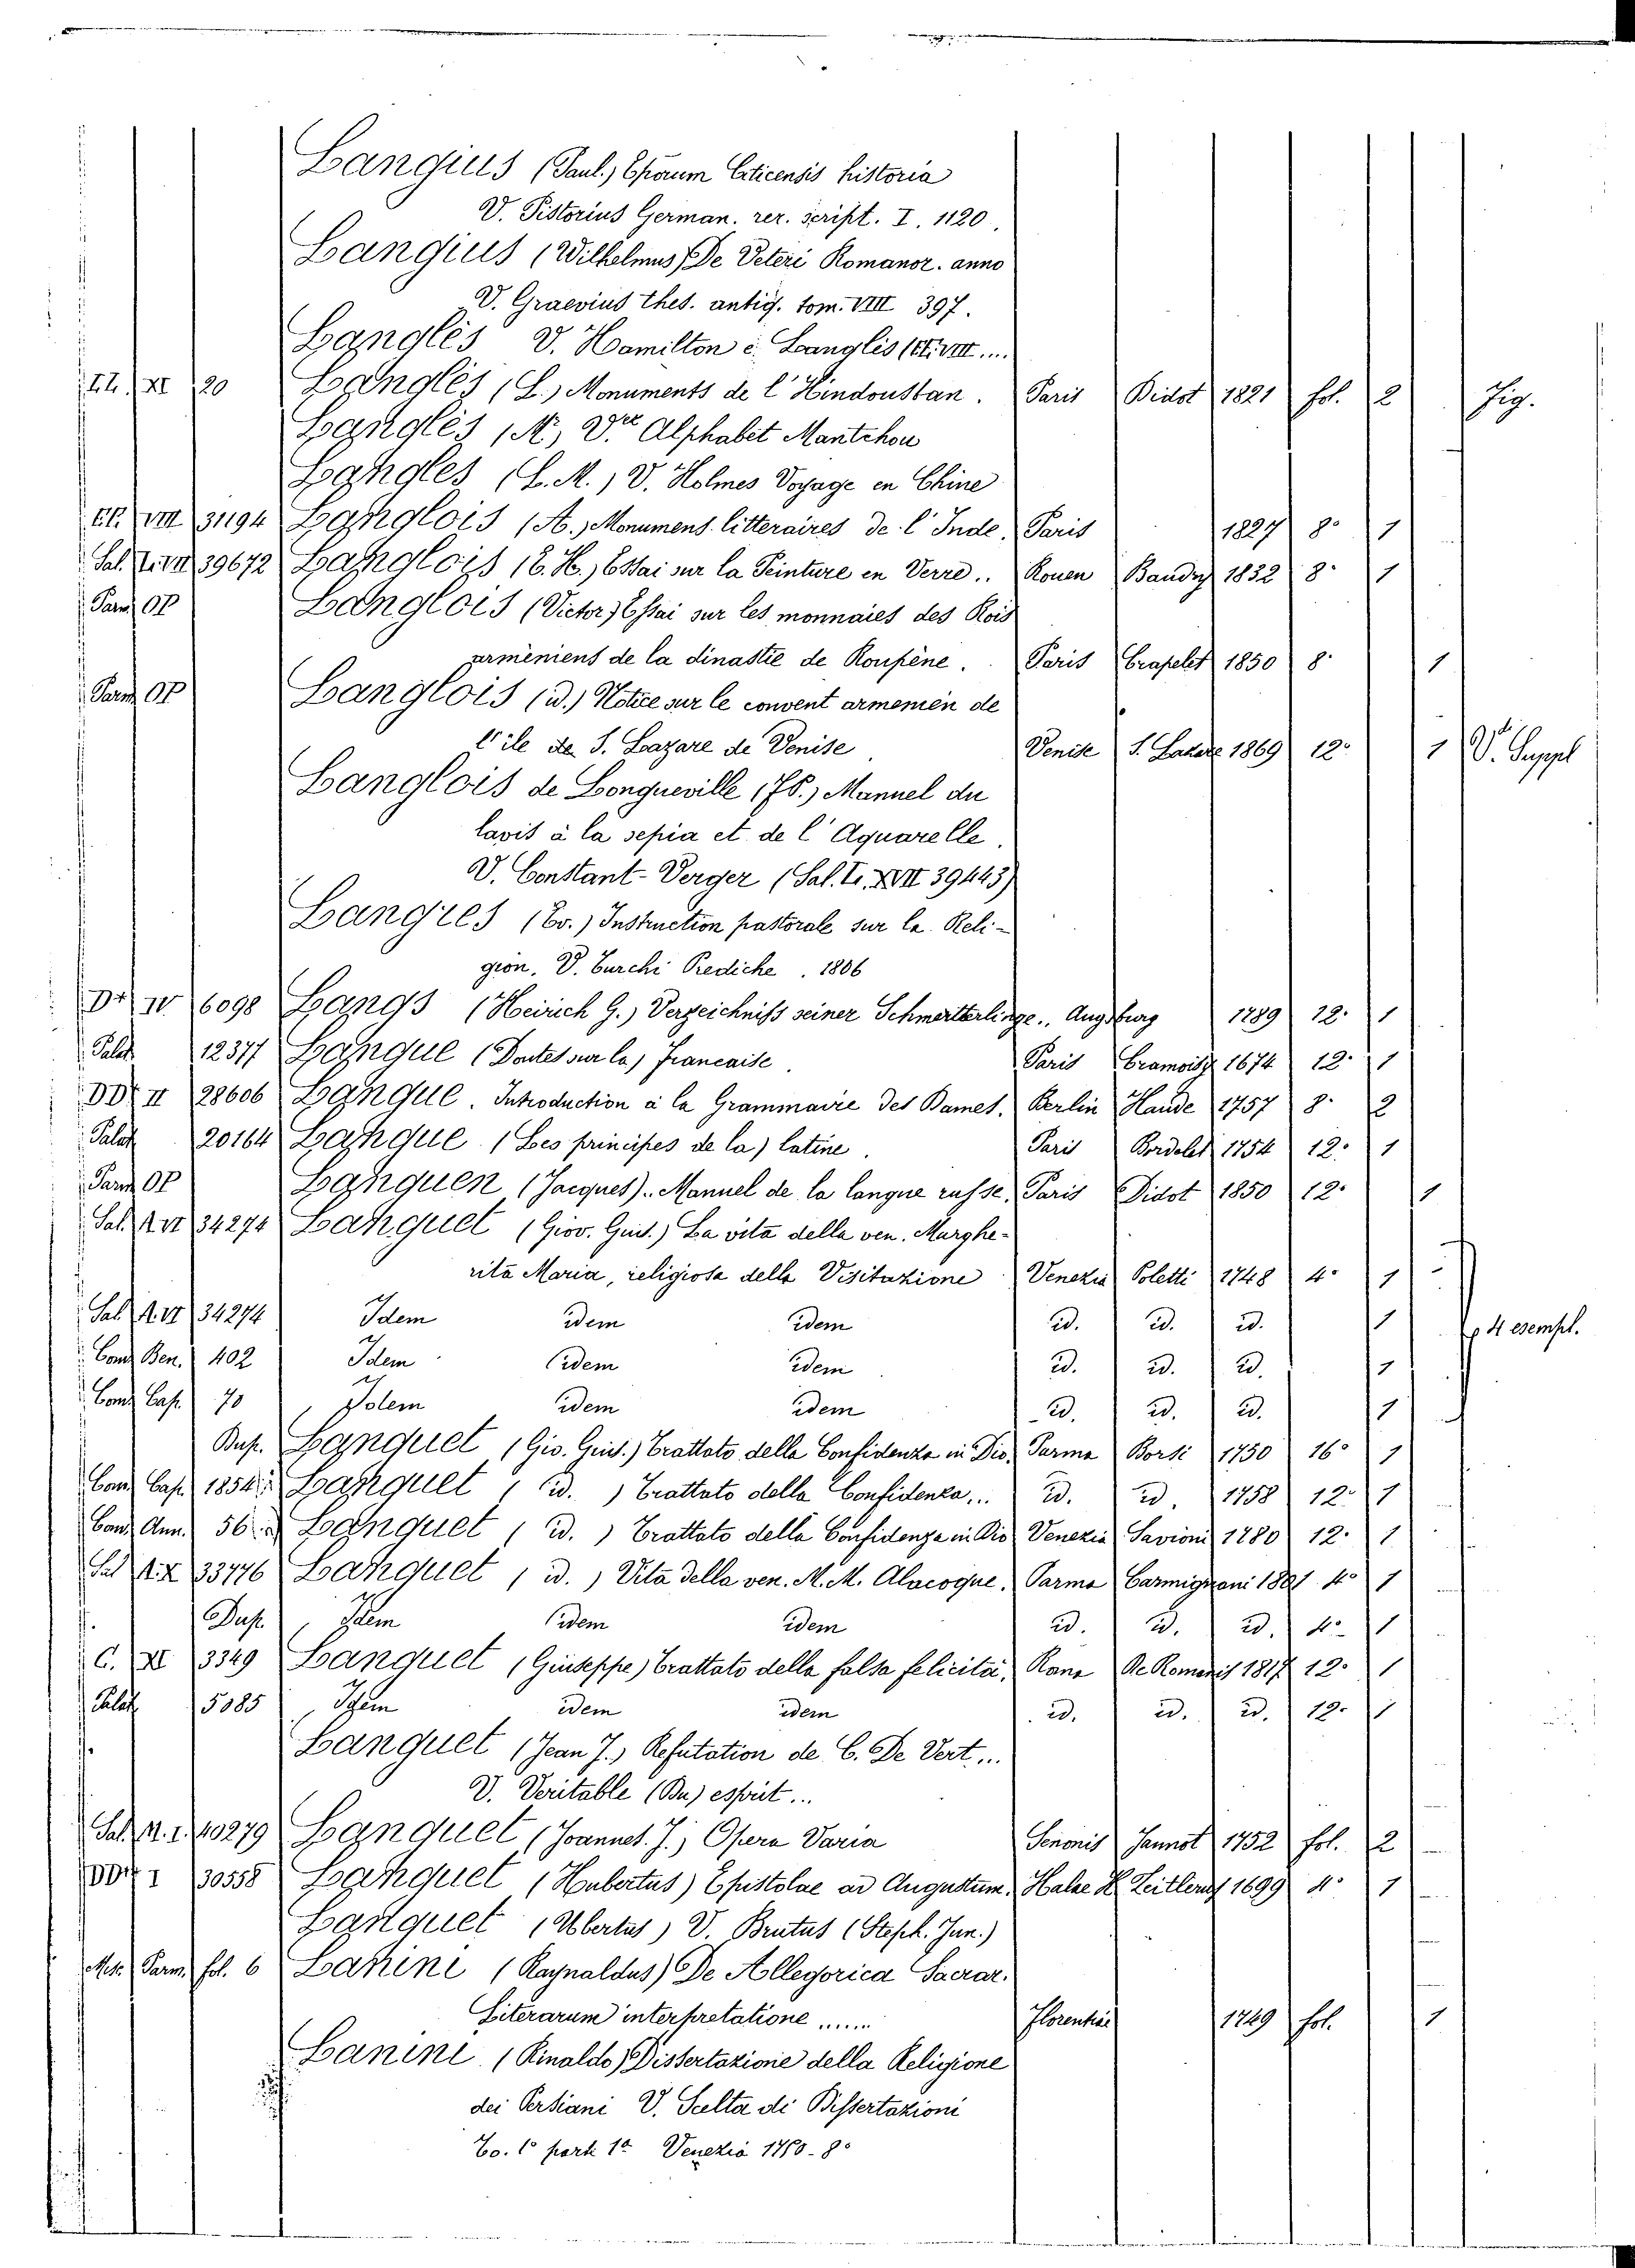 Langius (Paul.) Eporum Citicensis historia
V. Pistorius German. rer. script. I. 1120.
Langius (Wilhelmus) De Veteri Romanor. anno
V. Graevius thes. antiq. tom. VIII 397.
Langlès V. Hamilton è Langlès
XI 20 Langlès (L.) Monuments de l'Hindoustan. Paris Didot 1821 fol. 2 Fig.
Langlès V. Alphabet Mantchou
Langles (L. M.) V. Holmes Voyage en Chine
VIII 31194 Langlois (A.) Monumens litteraires de l'Inde. Paris 1827 8° 1
39672 Langlois (E. H.) Essai sur la Peinture en Verre.. Rouen Baudry 1832 8° 1
Parm. OP Langlois (Victor) Essai sur les monnaies des Rois
armèniens de la dinastie de Roupène. Paris Crapelet 1850 8° 1
Parm. OP Langlois (id.) Notice sur le convent armenien de
l'ile de S. Lazare de Venise Venise S. Lazare 1869 12° 1 V. Suppl
Langlois de Longueville Manuel du
lavis à la sepia et de l'Aquarelle.
V. Constant-Verger (Sal. XVII 39443)
Langres (Ev.) Instruction pastorale sur la Reli-
gion. V. Turchi Prediche. 1806
IV 6098 Langs (Heirich G.) Verzeichniss seiner Schmetterlinge.. Augsburg 1789 12° 1
Palat 12377 Langue (Doutes sur la) Francaise. Paris Cramoisy 1674 12° 1
DD. II 28606 Langue. Introduction à la Grammaire des Dames. Berlin Haude 1757 8° 2
Palat 20164 Langue (Les principes de la) latine. Paris Bordelet 1754 12° 1
Parm. OP Languen (Jacques). Manuel de la langue russe. Paris Didot 1850 12° 1
Sal. 34274 Languet (Giov. Gius.) La vita della ven. Marghe-
rita Maria, religiosa della Visitazione Venezia Poletti 1748 4° 1
Sal. 34274 Idem idem idem id. id. id. 1 4 esempl.
Conv. Ben. 402 Idem idem idem id. id. id. 1
Conv. Cap. 70 Idem idem idem id. id. id. 1
Dup. Languet (Gio. Gius.) Trattato della Confidenza in Dio, Parma Borsi 1750 16° 1
Conv. Cap. 1854 Languet (id.) Trattato della Confidenza... id. id. 1758 12° 1
Conv. Ann. 56 Languet (id.) Trattato della Confidenza in Dio Venezia Savioni 1780 12° 1
33776 Languet (id.) Vita della ven. M. M. Alacoque, Parma Carmignani 4° 1
Dup. Idem idem idem id. id. id. 4° 1
C. XI 3349 Languet (Giuseppe) Trattato della falsa felicità, Roma De Romanis 1817 12° 1
Palat 5085 Idem idem idem id. id. id. 12° 1
Languet (Jean J.) Refutation de C. De Vert...
V. Veritable (Du) esprit...
40279 Languet (Joannes J.) Opera Varia Senonis Jannot 1752 fol. 2
I 30558 Languet (Hubertus) Epistolae ad Augustum, Halae H. Zeitlerus 1699 4° 1
Languet (Ubertus) V. Brutus (Steph. Jun.)
Parm. fol. 6 Lanini (Raynaldus) De Allegorica Sacrar.
Literarum interpretatione ...... Florentiae 1749 fol. 1
Lanini (Rinaldo) Dissertazione della Religione
dei Persiani V. Scelta di Dissertazioni
To. 1° part 1ª Venezia 1750-8°